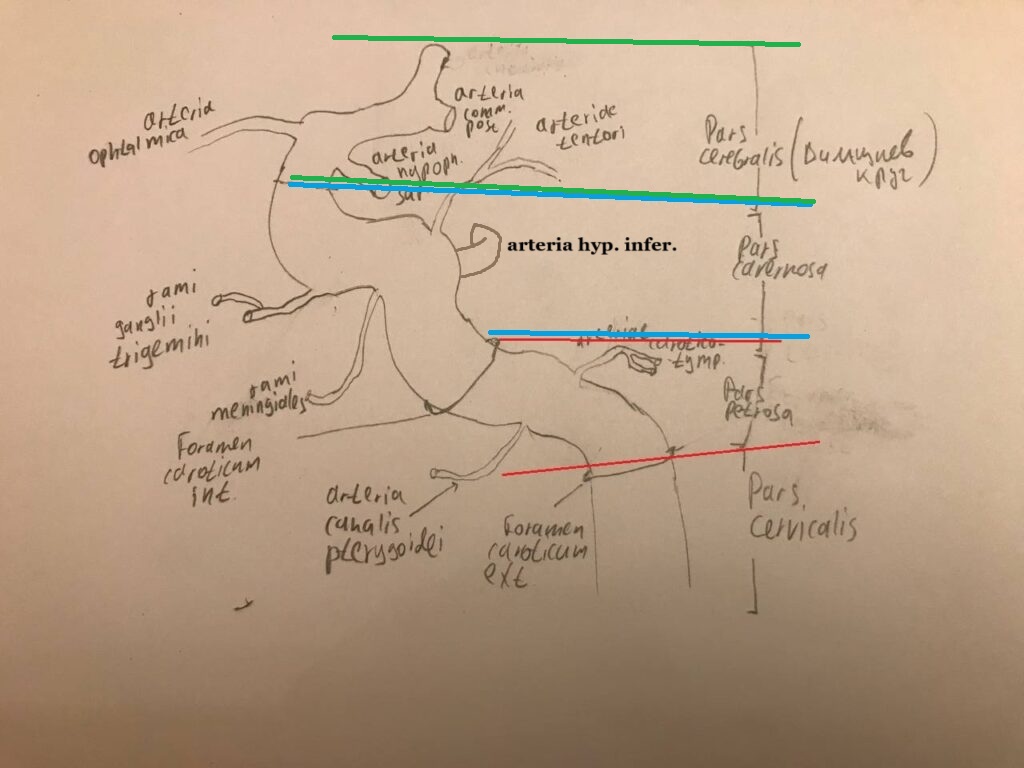 arteria
ophtalmica
arteria
comm.
post
arteriae
tentori
arteria
hypoph.
sup
Pars
cerebralis (Вилизиев
круг)
arteria hyp. infer.
Pars
cavernosa
rami
ganglii
trigemihi
carotico-
tymp.
rami
meningiales
Pars
petrosa
Foramen
caroticum
int.
arteria
canalis
pterygoidei
Foramen
caroticum
ext.
Pars
cervicalis